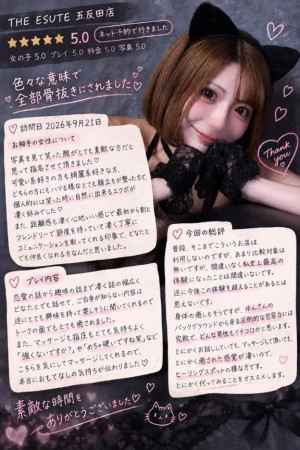 THE ESUTE 五反田店
★★★★★ 5.0 ネット予約で行きました
女の子 5.0 プレイ 5.0 料金 5.0 写真 5.0
色々な意味で
全部骨抜きにされました
訪問日 2026年9月21日
お相手の女性について
写真を見て笑った顔がとても素敵な方だと
思って指名させて頂きました♡
可愛い系好きの方も綺麗系好きな方、
どちらの方にもハマる様なとても顔立ちが整った方で、
個人的には笑った時に自然に出来るエクボが
凄く好みでした♡
また、距離感も凄く心地いい感じで最初から割と
フレンドリーで節度を持っていて凄く丁寧に
コミュニケーションを取ってくれる印象で、どなたと
でも仲良くなれる方なんだと思いました。
Thank you
プレイ内容
恋愛の話から趣味の話まで凄く話の幅広く
どなたとでも話せて、ご自身が知らない内容は
逆にとても興味を持って楽しそうに聞いてくれるので
トークの面でもとても癒されました。
また、マッサージも指圧もとても気持ちよく
「強くないですか？、や「めちゃ硬いですね笑」など
こちらを気にしてマッサージしてくれるので、
本当におもてなしの気持ちが伝わりました♡
今回の総評
普段、そこまでこういうお店は
利用しないですが、あまり比較対象は
無いですが、間違いなく私史上最高の
体験になったことは間違いないです。
逆に今後この体験を超えることがあるとは
思えないです。
身体の癒しもそうですが、ゆんさんの
バックグラウンドから来る圧倒的な包容力には
完敗で、どんな男性もイチコロかと思います。
とにかくお話していても、マッサージして頂いても
とにかく癒された感覚が凄いので、
ヒーリングスポットの様な方です。
とにかく行ってみることをオススメします。
素敵な時間を
ありがとうございました♡